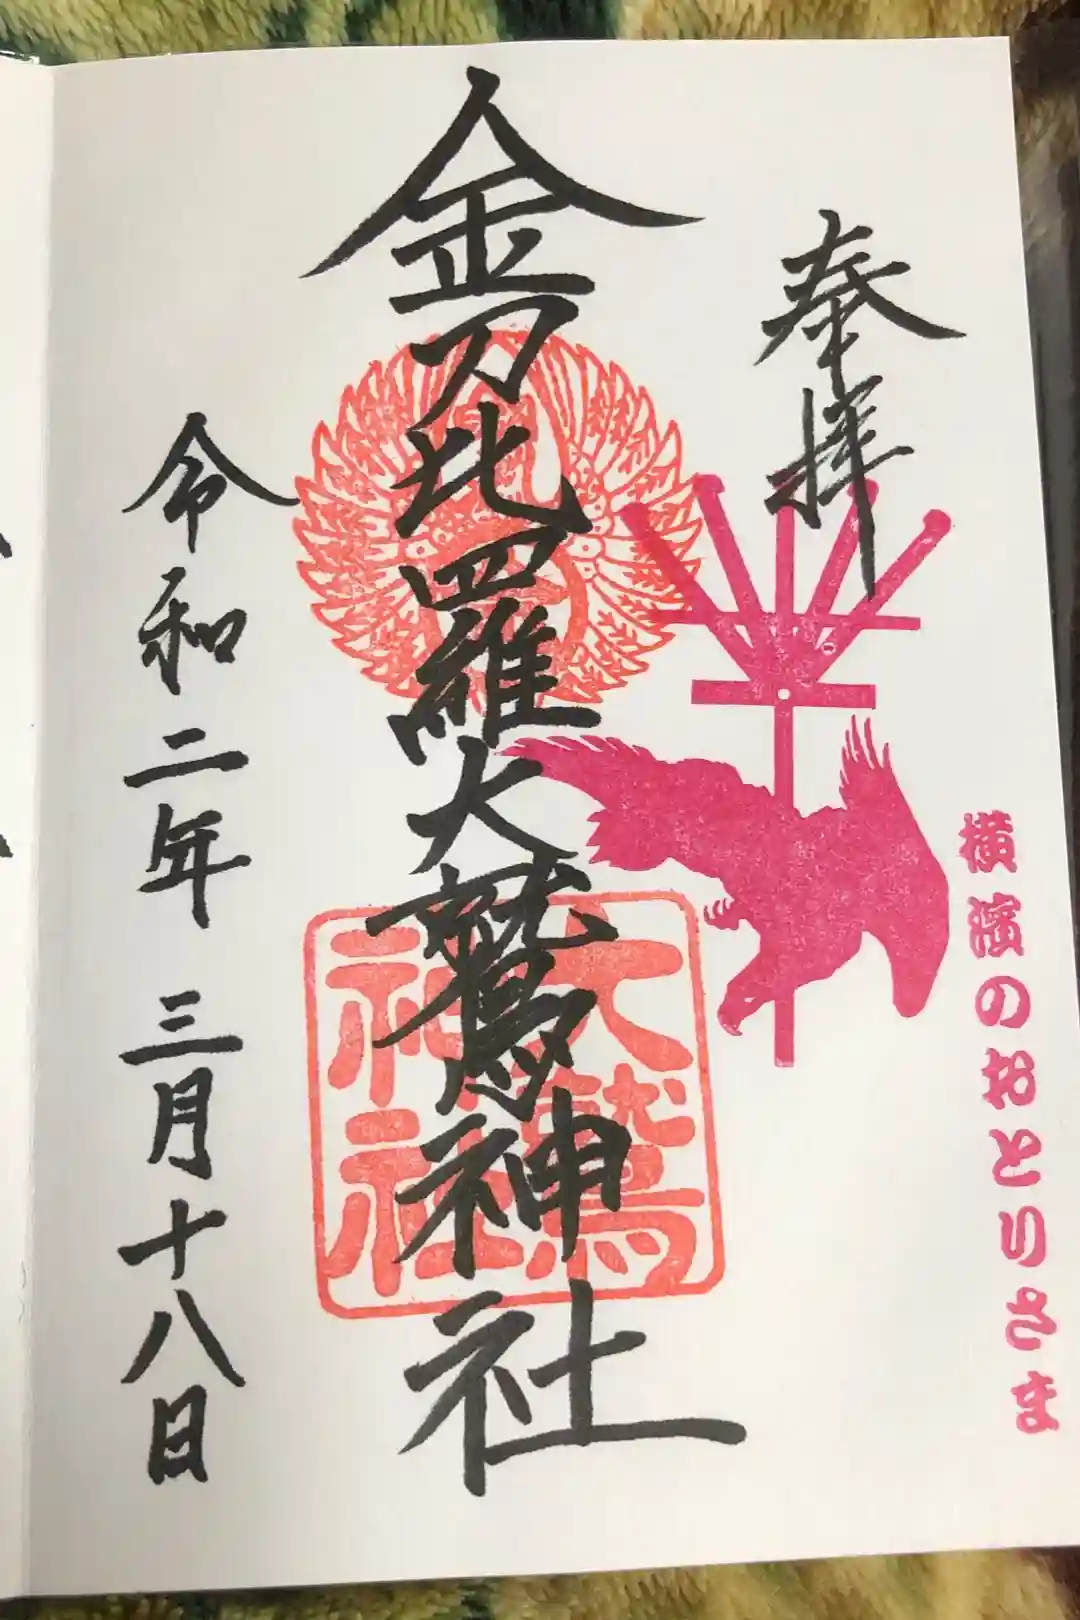 横濱のおとりさま
奉拝
金刀比羅大鷲神社
大鷲
神社
令和二年 三月十八日